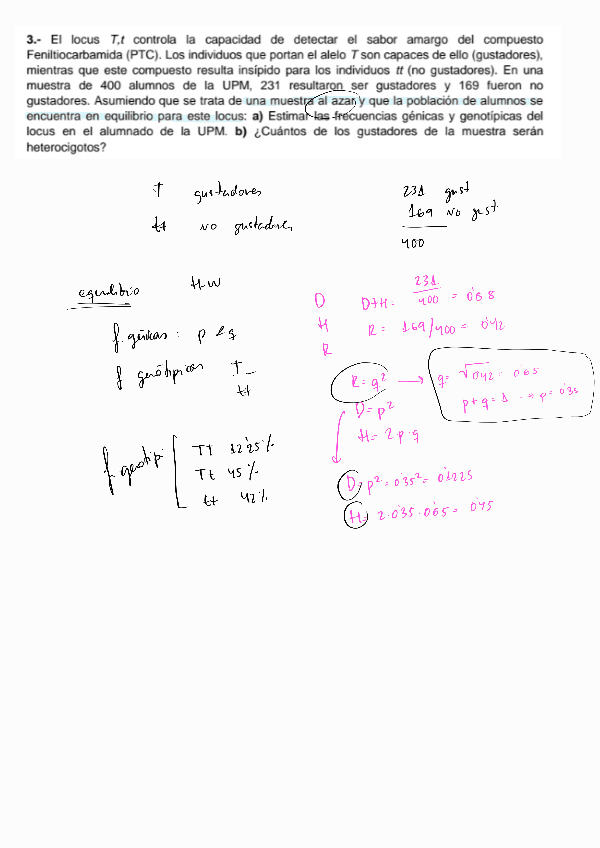 3.- El locus T,t controla la capacidad de detectar el sabor amargo del compuesto
Feniltiocarbamida (PTC). Los individuos que portan el alelo T son capaces de ello (gustadores),
mientras que este compuesto resulta insípido para los individuos tt (no gustadores). En una
muestra de 400 alumnos de la UPM, 231 resultaron ser gustadores y 169 fueron no
gustadores. Asumiendo que se trata de una muestra al azar y que la población de alumnos se
encuentra en equilibrio para este locus: a) Estimar las frecuencias génicas y genotípicas del
locus en el alumnado de la UPM. b) ¿Cuántos de los gustadores de la muestra serán
heterocigotos?
T gustadores
tt no gustadores
231 gust
169 no gust.
400
equilibrio H-W
f. génicas: p e q
f genotípicas T_
tt
f. genotípi:
TT 12'25%
Tt 45%
tt 42%
D
H
R
D+H = 231/400 = 0'68
R = 169/400 = 0'42
R = q²
q = √0'42 = 0'65
p+q = 1 → p = 0'35
D = p²
H = 2·p·q
D = p² = 0'35² = 0'1225
H = 2·0'35·0'65 = 0'45